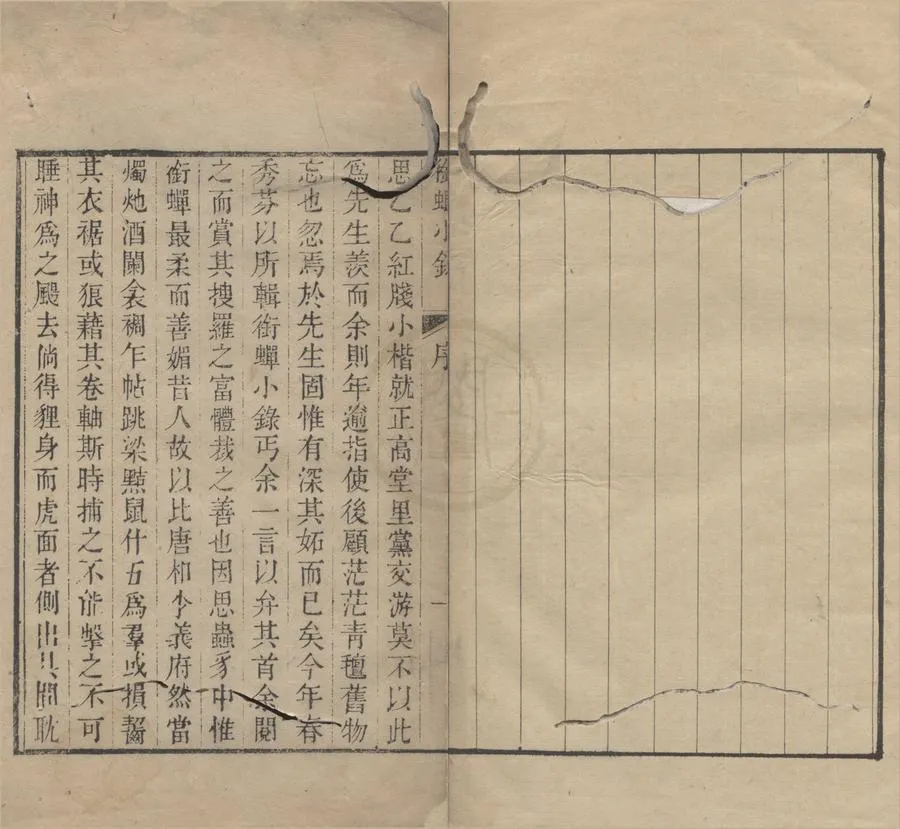 銜蟬小錄 序 一
思乙乙紅牋小楷就正高堂里黨交游莫不以此
爲先生羨而余則年逾指使後顧茫茫青氊舊物
忘也忽焉於先生固惟有深其妬而已矣今年春
秀芬以所輯銜蟬小錄丐余一言以弁其首余閱
之而賞其搜羅之富體裁之善也因思蟲豸中惟
銜蟬最柔而善媚昔人故以比唐相李義府然當
燭灺酒闌衾裯乍帖跳梁黠鼠什五爲羣或損齧
其衣裾或狼藉其卷軸斯時捕之不能擊之不可
睡神爲之颺去倘得貍身而虎面者側出其間耽